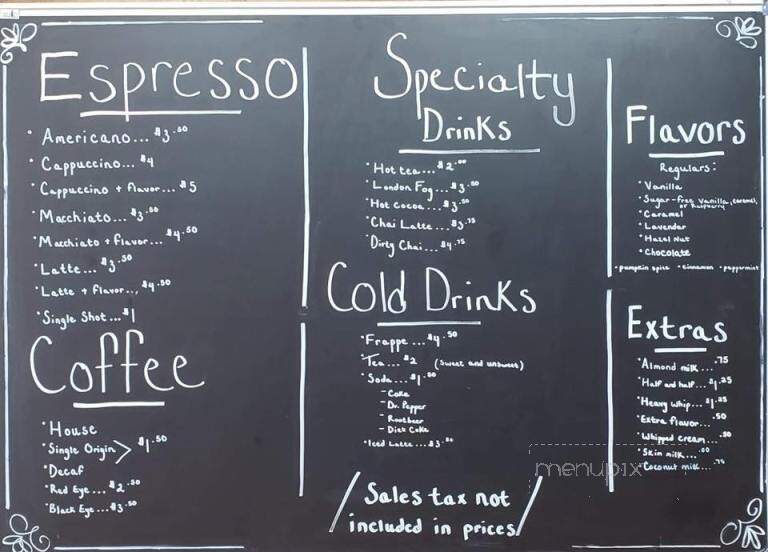 Espresso
Americano... $3.50
Cappuccino... $4
Cappuccino + flavor... $5
Macchiato... $3.50
Macchiato + flavor... $4.50
Latte... $3.50
Latte + flavor... $4.50
Single Shot... $1
Coffee
House
Single Origin > $1.50
Decaf
Red Eye... $2.50
Black Eye... $3.50
Specialty
Drinks
Hot tea... $2.00
London Fog... $3.50
Hot Cocoa... $3.50
Chai Latte... $3.75
Dirty Chai... $4.75
Cold Drinks
Frappe... $4.50
Tea... $2 (sweet and unsweet)
Soda... $1.50
- Coke
- Dr. Pepper
- Rootbeer
- Diet Coke
Iced Latte... $3.50
Sales tax not
included in prices
Flavors
Regulars:
Vanilla
Sugar-free vanilla, caramel,
or raspberry
Caramel
Lavender
Hazel Nut
Chocolate
pumpkin spice • cinnamon • peppermint
Extras
Almond milk... .75
Half and half... $1.25
Heavy whip... $1.25
Extra flavor... .50
Whipped cream... .50
Skim milk...
Coconut milk... .75
menupix